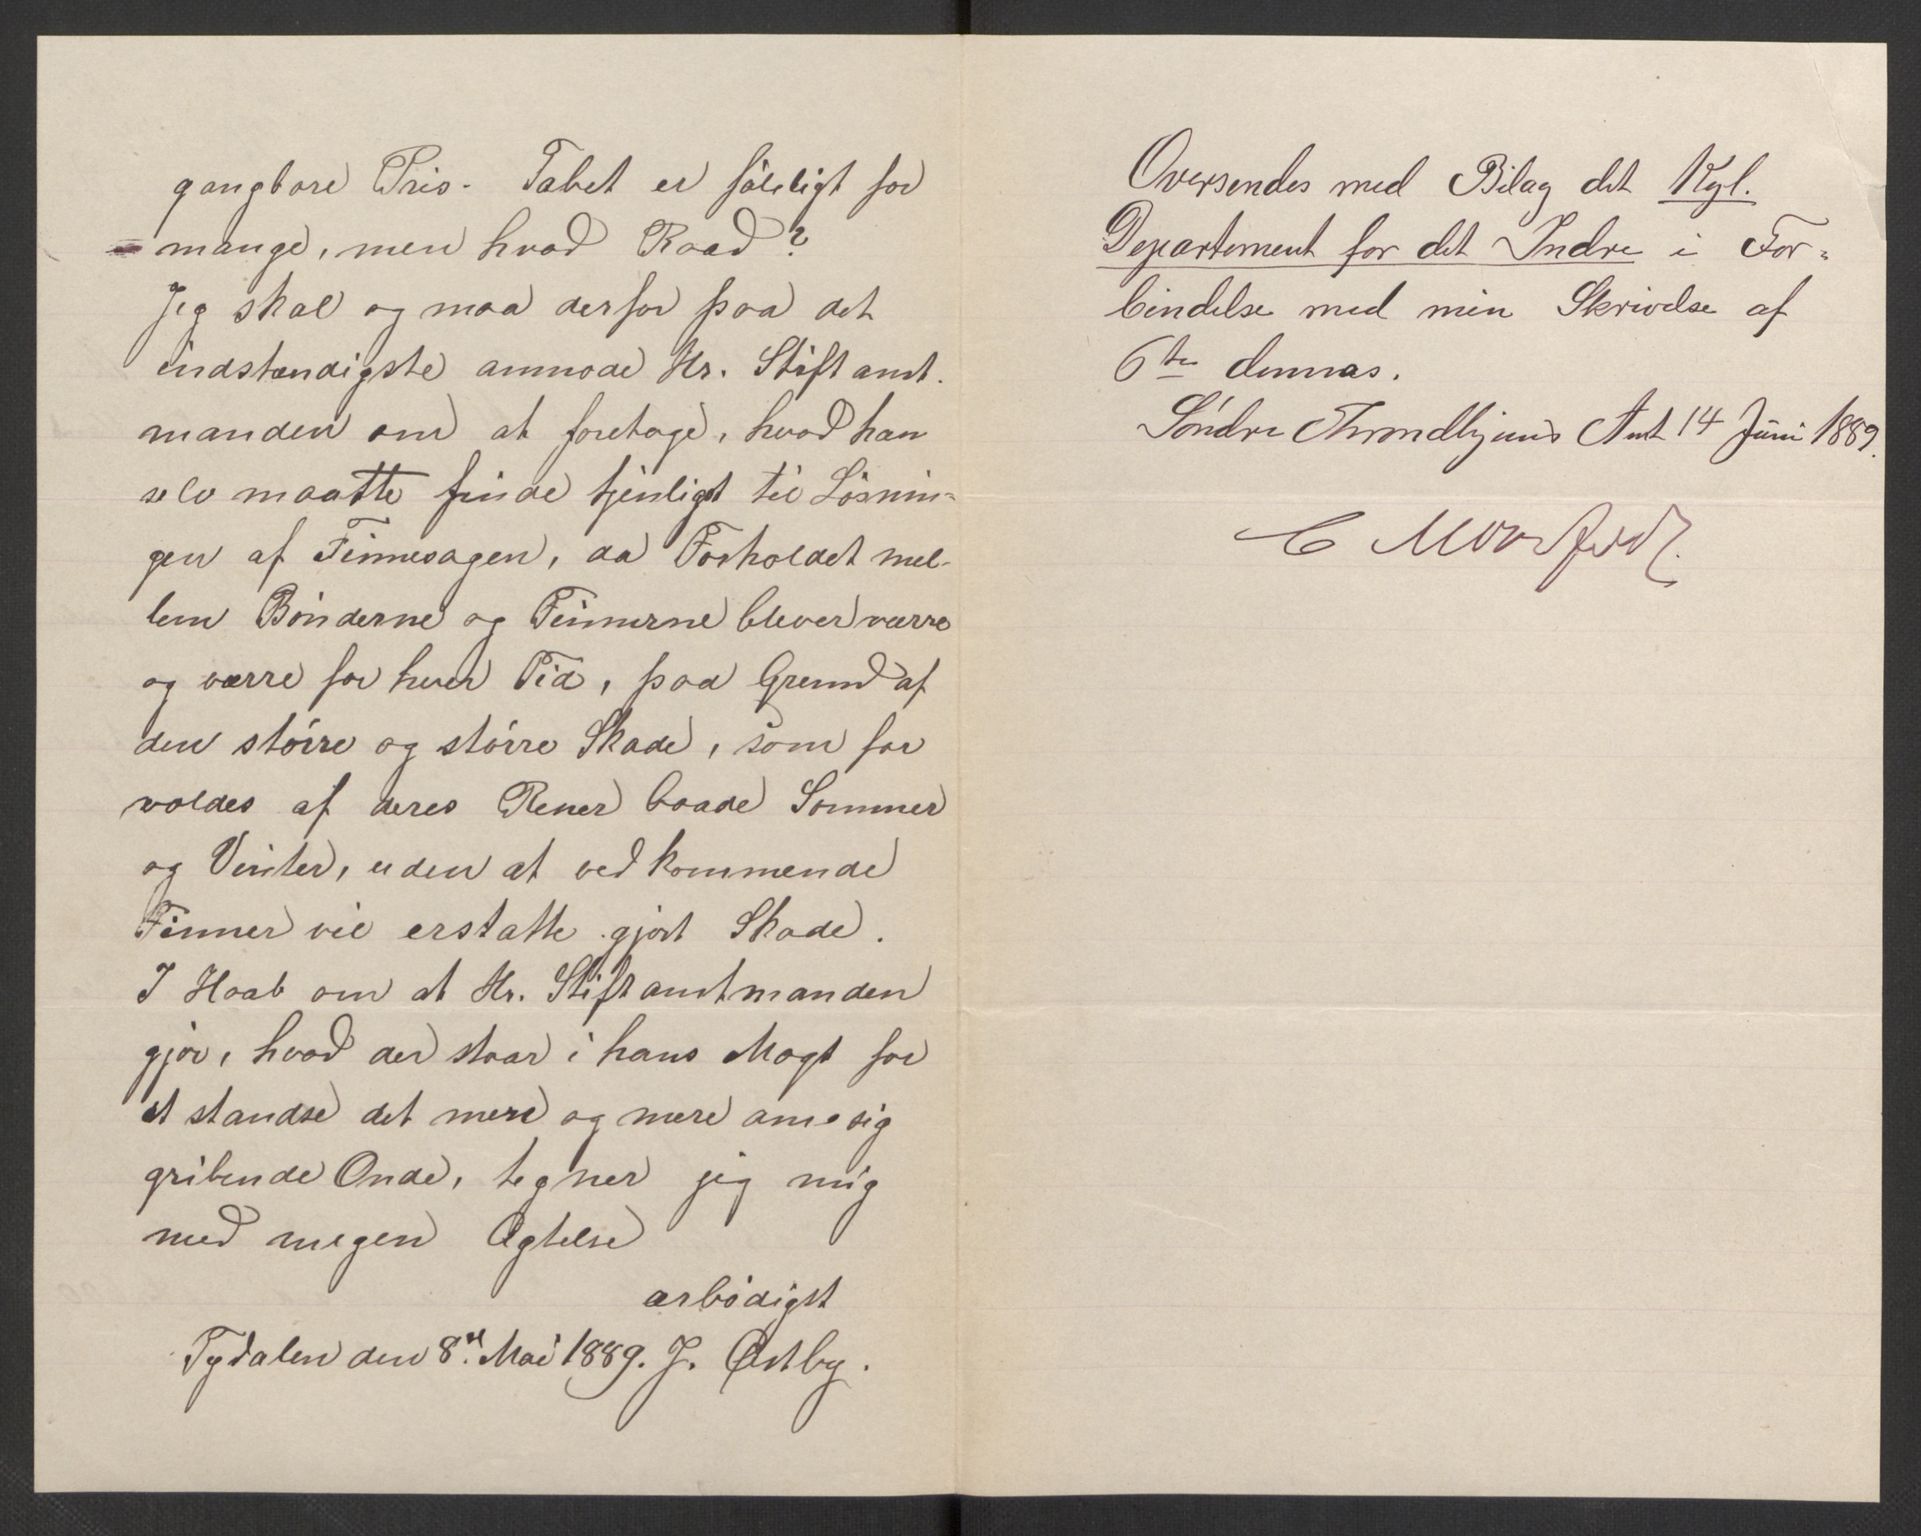 gangbare Pris. Tabet er føleligt for
mange, men hvad Raad?
Jeg skal og maa derfor paa det
indstændigste anmode Hr. Stiftamt.
manden om at foretage, hvad han
selv maatte finde tjenligst til Løsnin=
gen af Finnesagen, da Forholdet mel-
lem Bønderne og Finnerne bliver værre
og værre for hver Tid, paa Grund af
den større og større Skade, som for
voldes af deres Rener baade Sommer
og Vinter, uden at vedkommende
Finner vil erstatte gjort Skade.
I Haab om at Hr. Stiftamtmanden
gjør, hvad der staar i hans Magt for
at standse det mere og mere om sig
gribende Onde, tegner jeg mig
med megen Agtelse
ærbødigst
Tydalen den 8de Mai 1889. J. Østby.
Oversendes med Bilag det Kgl.
Departement for det Indre i For=
bindelse med min Skrivelse af
6te dennes.
Søndre Throndhjems Amt 14 Juni 1889.
C